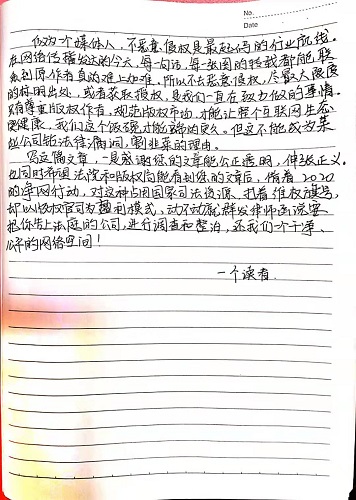 No.
Date
作为一个媒体人，不恶意侵权是最起码的行业底线。
在网络传播发达的今天，每一句话、每一张图的转载都能联
系到原作者真的难上加难，所以不去恶意侵权，尽最大限度
的标明出处，或者获取授权，是我们一直在致力做的事情。
只有尊重版权作者，规范版权市场，才能让整个互联网生态
更健康，我们这个饭碗才能端的更久。但这不能成为某
些公司钻法律漏洞，割韭菜的理由。
写这篇文章，一是感谢您的文章能公正透明，伸张正义。
也同时希望法院和版权局能看到您的文章后，借着2020
的净网行动，对这种占用国家司法资源、打着维权旗号，
却以版权官司为盈利模式，动不动就群发律师函说要
把你告上法庭的公司，进行调查和整治，还我们一个干净、
公平的网络空间！
一个读者